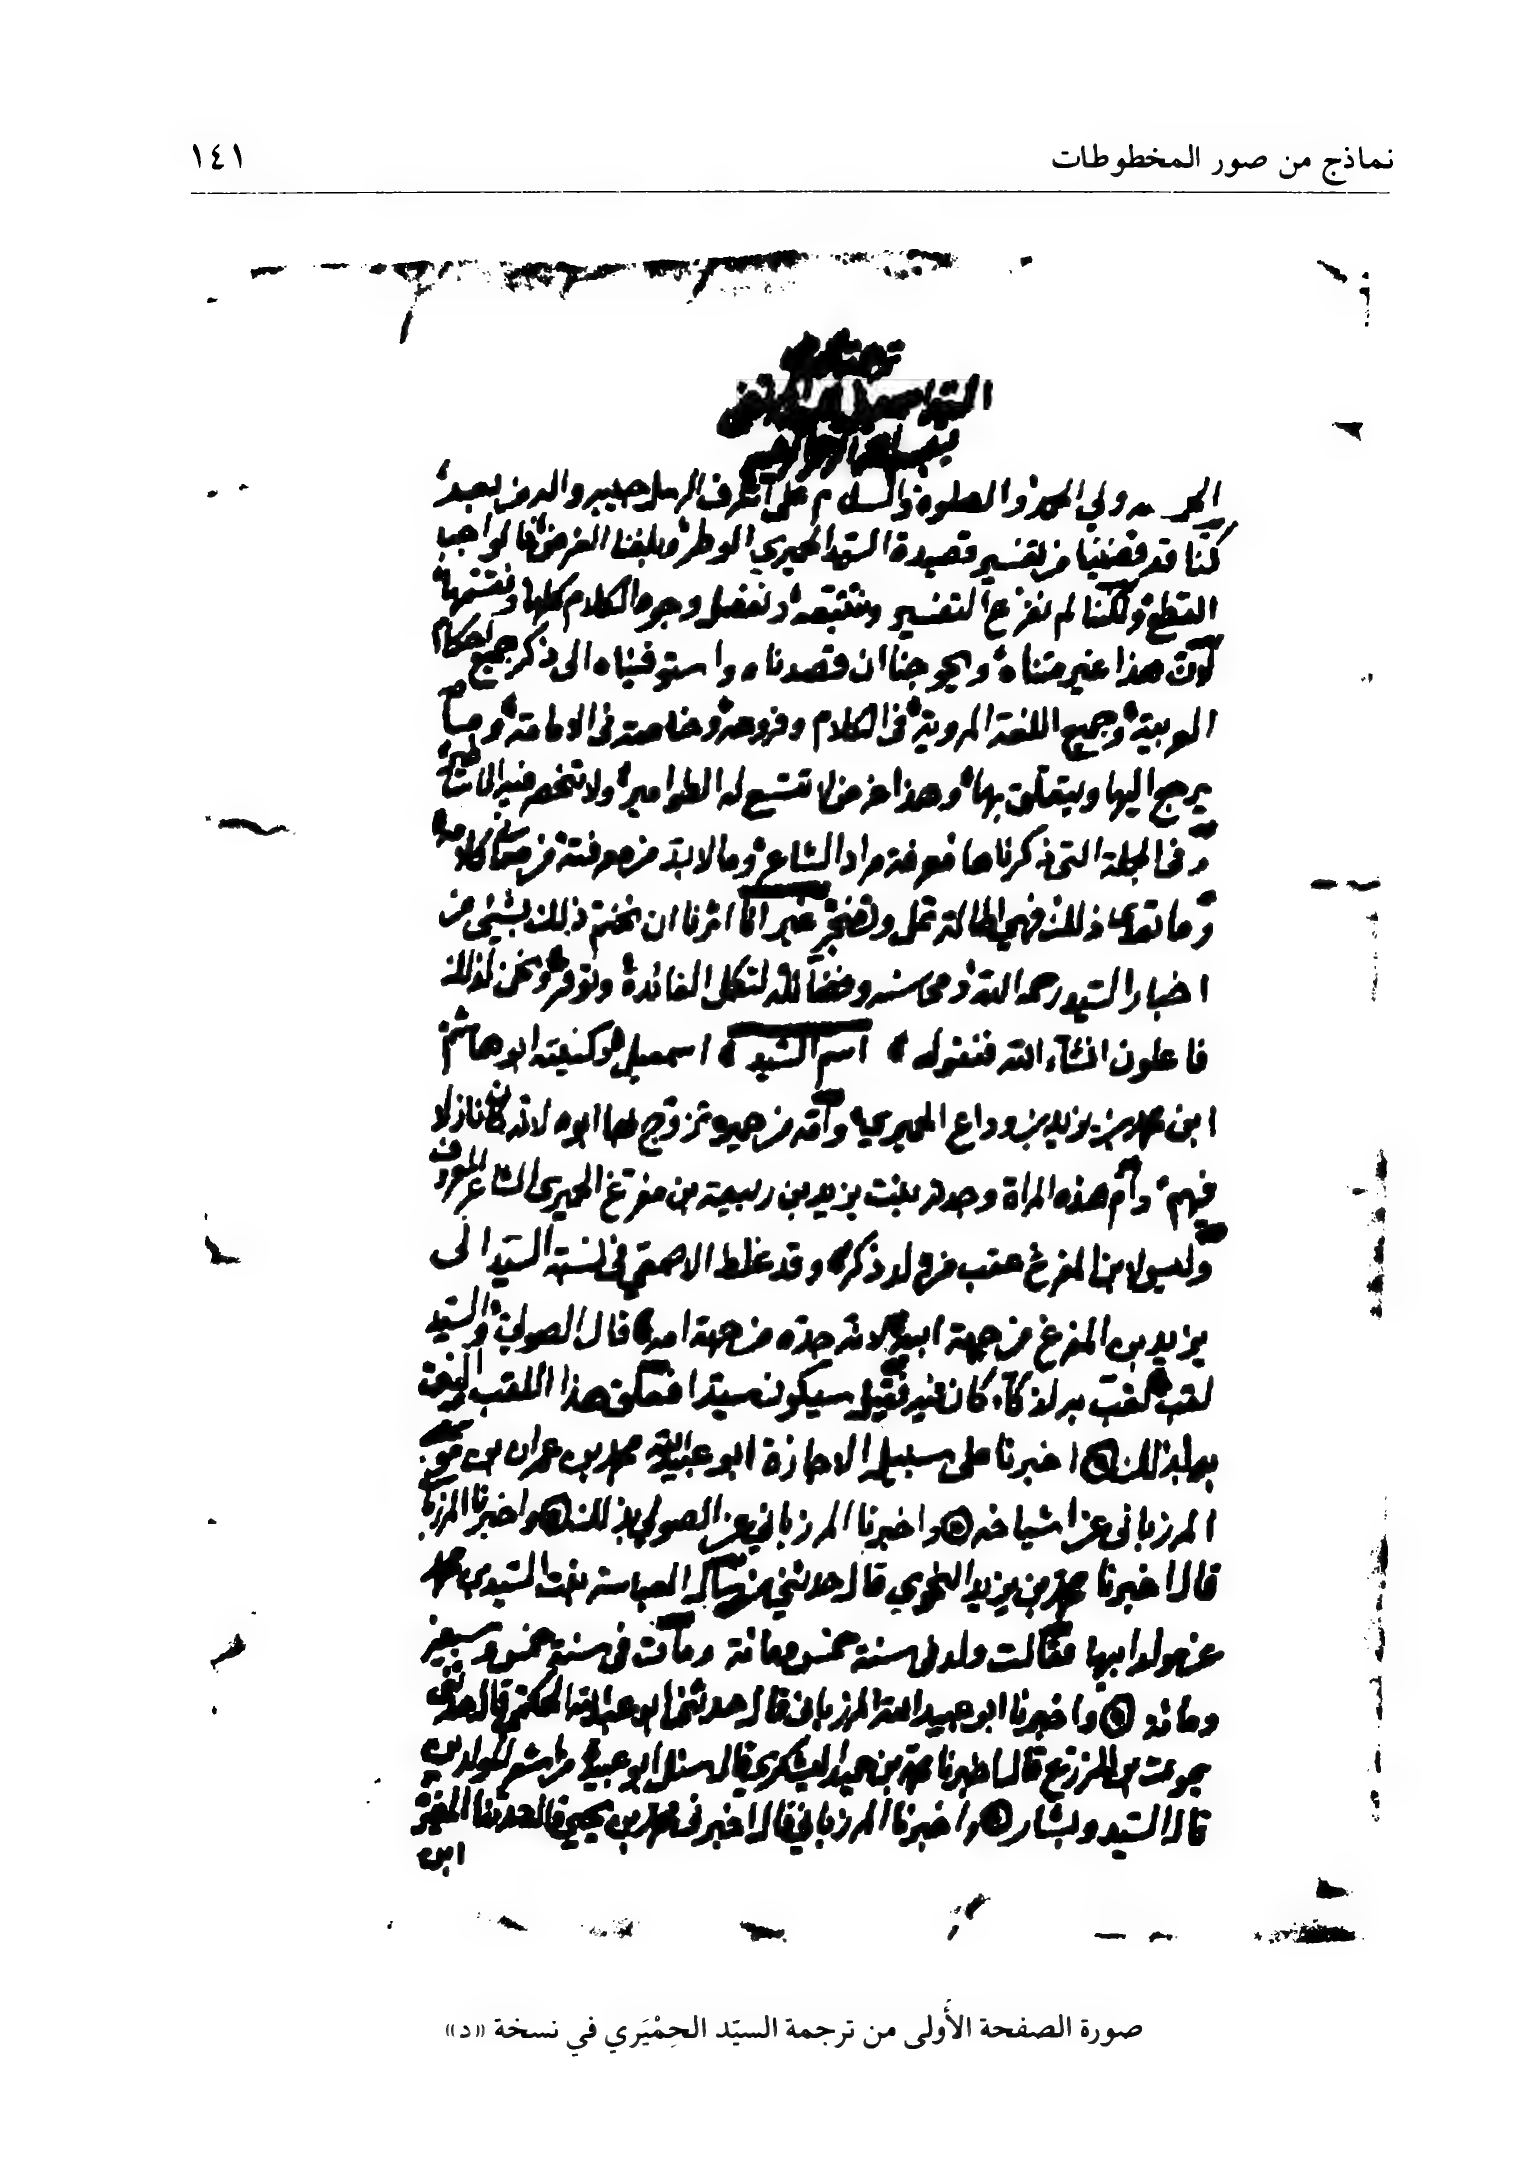 نماذج من صور المخطوطات ١٤١
ولي الحمد والصلوة والسلام على اشرف الرسل حبيبه والدين بعد
كنا قد قضينا من تفسير قصيدة السيد الحميري الوطر وبلغنا الغرض
القطع ولكنا لم نفرع التفسير ونفصل وجوه الكلام كلها
لأن هذا غير متناه ويحوجنا ان قصدناه واستوفيناه الى ذكر جميع احكام
العربية وجميع اللغة المروية في الكلام وفروعه وخاصة في الامامة وما
يرجع اليها ويتعلق بها وهذا غرض لا تتسع له الطوامير ولا تنحصر فيه
وفي الجملة التى ذكرناها معرفة مراد الشاعر وما لا بد من معرفته من معاني كلامه
وما تعدى ذلك فهي اطالة تمل وتضجر غير انا اثرنا ان نختم ذلك بشيئ من
اخبار السيد رحمه الله ومحاسنه وفضائله لتكمل الفائدة وتوفر ونحن لذلك
فاعلون انشاء الله فنقول اسم السيد اسمعيل وكنيته ابو هاشم
ابن محمد بن يزيد بن وداع الحميري وامه من تزوج بها ابوه لانه كان نازلا
فيهم وام هذه المراة بنت يزيد بن ربيعة بن مفرغ الحميرى الشاعر المعروف
وليس لابن المفرغ عقب من ولد ذكر وقد غلط الاصمعي في نسبة السيد الى
يزيد بن المفرغ من جهة ابيه لانه جده من جهة امه قال الصولي والسيد
لقب لقب به لذكاء كان فيه فقيل سيكون سيدا فعلق هذا اللقب
اخبرنا على سبيل الاجازة ابو عبيد الله محمد بن عمران بن موسى
المرزباني عن اشياخه واخبرنا المرزباني عن الصولي بذلك واخبرنا المرزباني
قال اخبرنا محمد بن يزيد النحوي قال حدثني من سأل العباسة بنت السيد
عن مولد ابيها فقالت ولد في سنة خمس ومائة ومات في سنة وسبعين
ومائة واخبرنا ابو عبيد الله المرزباني قال حدثنا ابو عبد الله الحكيمي قال حدثني
يموت بن المزرع قال محمد بن حميد اليشكري قال سئل ابو عبيدة من اشعر المولدين
قال السيد وبشار واخبرنا المرزباني قال اخبرني محمد بن يحيى قال حدثنا المغيرة
ابن
صورة الصفحة الأُولى من ترجمة السيّد الحِمْيَري في نسخة «د»